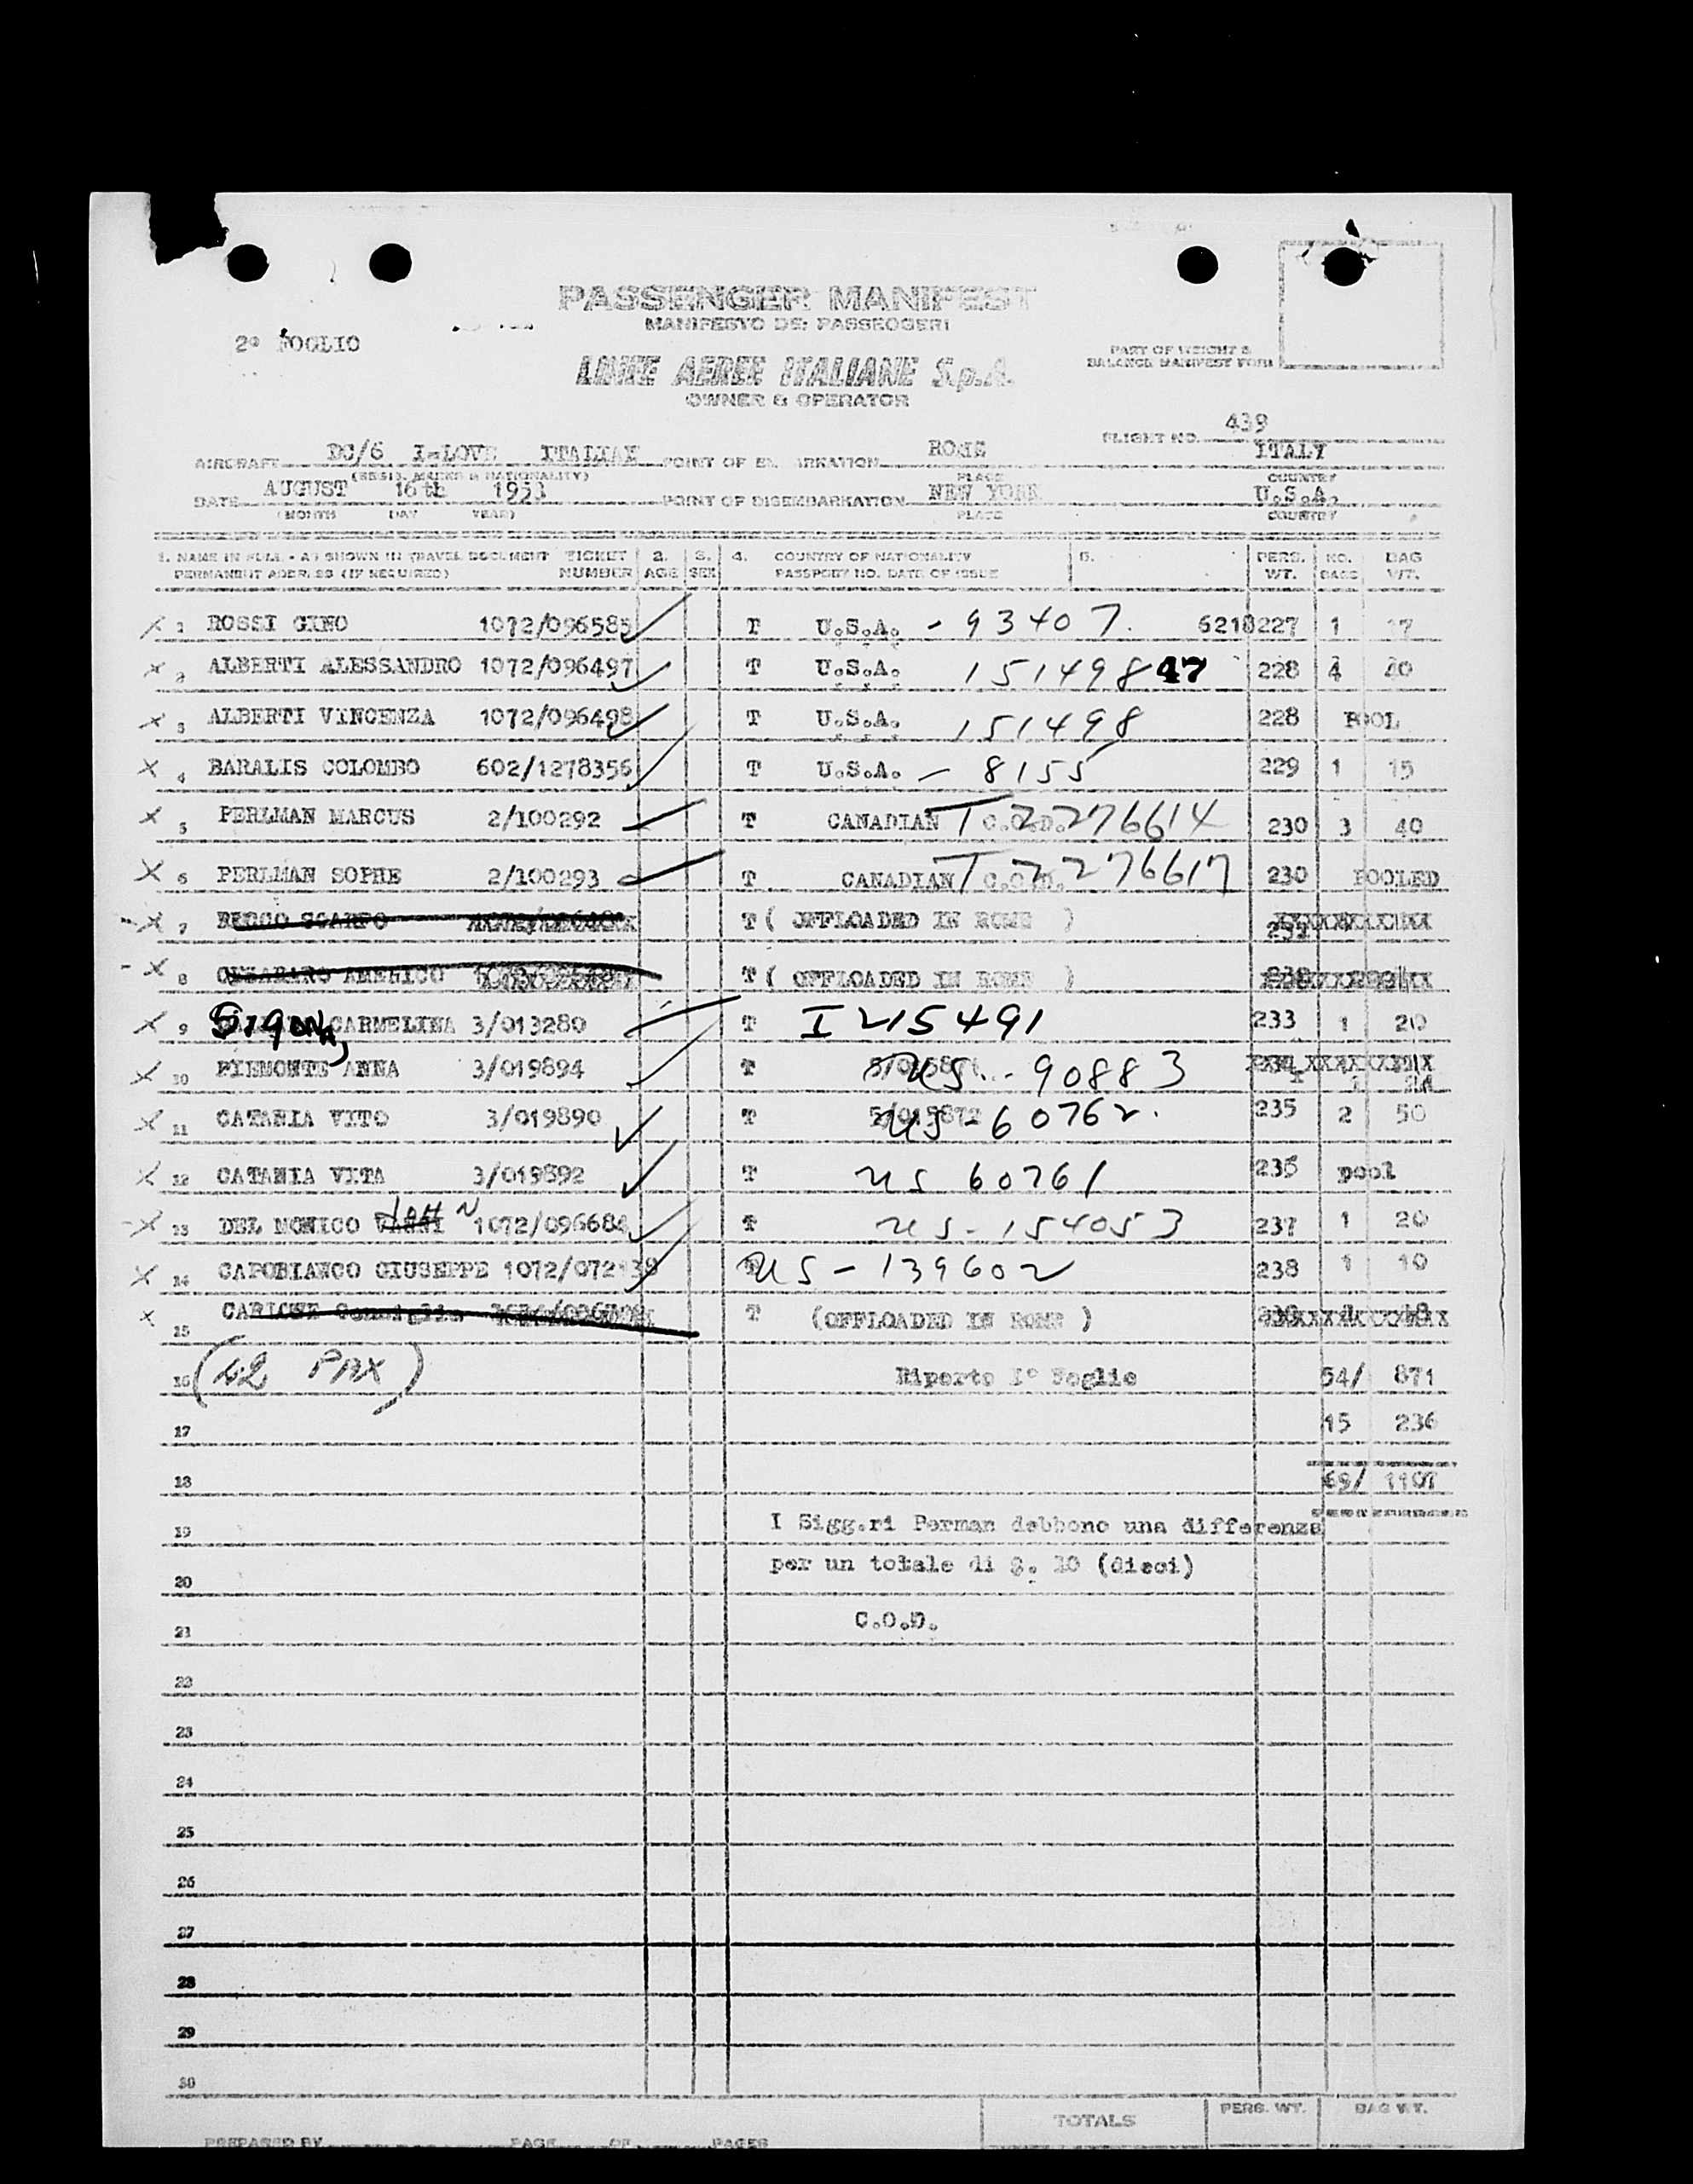 PASSENGER MANIFEST
MANIFESTO DEI PASSEGGERI
2º FOGLIO
PART OF WEIGHT &
BALANCE MANIFEST FORM
LINEE AEREE ITALIANE S.p.A.
OWNER & OPERATOR
FLIGHT NO. 439
AIRCRAFT DC/6 I-LOVE ITALIAN POINT OF EMBARKATION ROME ITALY
(REGIS. MARKS & NATIONALITY) PLACE COUNTRY
DATE AUGUST 16th 1953 POINT OF DISEMBARKATION NEW YORK U.S.A.
(MONTH DAY YEAR) PLACE COUNTRY
1. NAME IN FULL - AS SHOWN IN TRAVEL DOCUMENT TICKET 2. 3. 4. COUNTRY OF NATIONALITY 5. PERS. NO. BAG
PERMANENT ADDRESS (IF REQUIRED) NUMBER AGE SEX PASSPORT NO. DATE OF ISSUE WT. BAGS WT.
X 1 ROSSI GINO 1072/096585 T U.S.A. - 93407. 6218 227 1 17
X 2 ALBERTI ALESSANDRO 1072/096497 T U.S.A. 151498 47 228 4 40
X 3 ALBERTI VINCENZA 1072/096498 T U.S.A. 151498 228 POOL
X 4 BARALIS COLOMBO 602/1278356 T U.S.A. - 8155 229 1 15
X 5 PERLMAN MARCUS 2/100292 T CANADIAN C.O.D. T 2276614 230 3 40
X 6 PERLMAN SOPHE 2/100293 T CANADIAN C.O.D. T 2276617 230 POOLED
X 7 T ( OFFLOADED IN ROME )
X 8 AMERICO T ( OFFLOADED IN ROME )
X 9 CARMELINA 3/013280 T I 215491 233 1 20
X 10 PIEMONTE ANNA 3/019894 T US - 90883
X 11 CATANIA VITO 3/019890 T US - 60762. 235 2 50
X 12 CATANIA VITA 3/019892 T US 60761 235 pool
X 13 DEL MONICO JOHN 1072/096684 T US - 154053 237 1 20
X 14 CAPOBIANCO GIUSEPPE 1072/072138 T US - 139602 238 1 10
X 15 T (OFFLOADED IN ROME )
16 (42 PAX) Riporto Iº Foglio 54/ 871
17 15 236
18 69/ 1107
19 I Sigg.ri Perman debbono una differenza
20 per un totale di $. 10 (dieci)
21 C.O.D.
22
23
24
25
26
27
28
29
30
TOTALS PERS. WT. BAG WT.
PREPARED BY PAGE OF PAGES